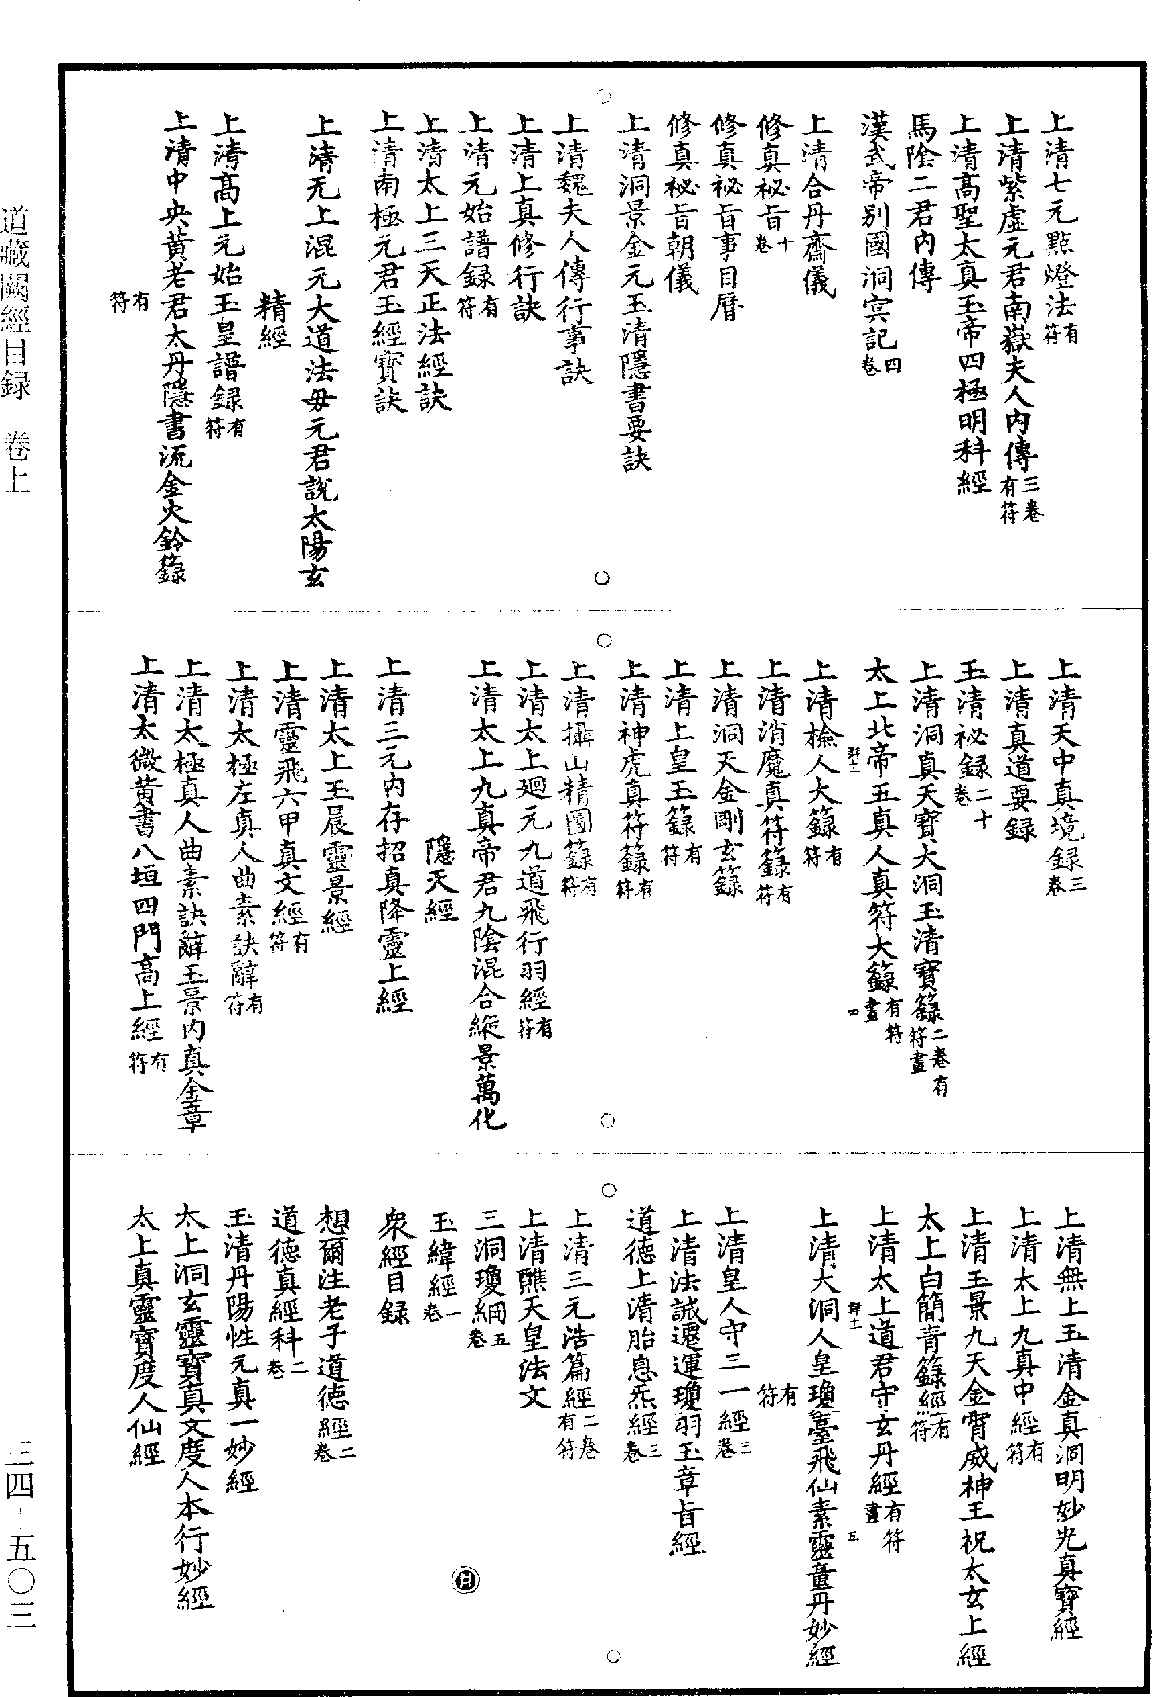 上清七元點燈法有符
上清紫虛元君南嶽夫人內傳三卷有符
上清高聖太真玉帝四極明科經
馬陰二君內傳
漢武帝別國洞冥記四卷
上清合丹齋儀
修真祕旨十卷
修真祕旨事目曆
修真祕旨朝儀
上清洞景金元玉清隱書要訣
上清魏夫人傳行事訣
上清上真修行訣
上清元始譜録有符
上清太上三天正法經訣
上清南極元君玉經寶訣
上清元上混元大道法母元君說太陽玄
精經
上清高上元始玉皇譜録有符
上清中央黃老君太丹隱書流金火鈴籙
有符
上清天中真境録三卷
上清真道要録
玉清祕録二十卷
上清洞真天寶大洞玉清寶籙二卷有符畫
太上北帝五真人真符大籙有符畫
上清檢人大籙有符
上清消魔真符籙有符
上清洞天金剛玄籙
上清上皇玉籙有符
上清神虎真符籙有符
上清攝山精圖籙有符
上清太上廻元九道飛行羽經有符
上清太上九真帝君九陰混合縱景萬化
隱天經
上清三元內存招真降靈上經
上清太上玉晨靈景經
上清靈飛六甲真文經有符
上清太極左真人曲素訣辭有符
上清太極真人曲素訣辭玉景內真金章
上清太微黃書八垣四門高上經有符
上清無上玉清金真洞明妙光真寶經
上清太上九真中經有符
上清玉景九天金霄威神王祝太玄上經
太上白簡青籙經有符
上清太上道君守玄丹經有符畫
上清大洞人皇瓊臺飛仙素靈童丹妙經
有符
上清皇人守三一經三卷
上清法誡遷運瓊羽玉章旨經
道德上清胎息炁經三卷
上清三元浩篇經二卷有符
上清醮天皇法文
三洞瓊綱五卷
玉緯經一卷
衆經目録
想爾注老子道德經二卷
道德真經科二卷
玉清丹陽性元真一妙經
太上洞玄靈寶真文度人本行妙經
太上真靈寶度人仙經
道藏闕經目録　卷上
三四-五〇三